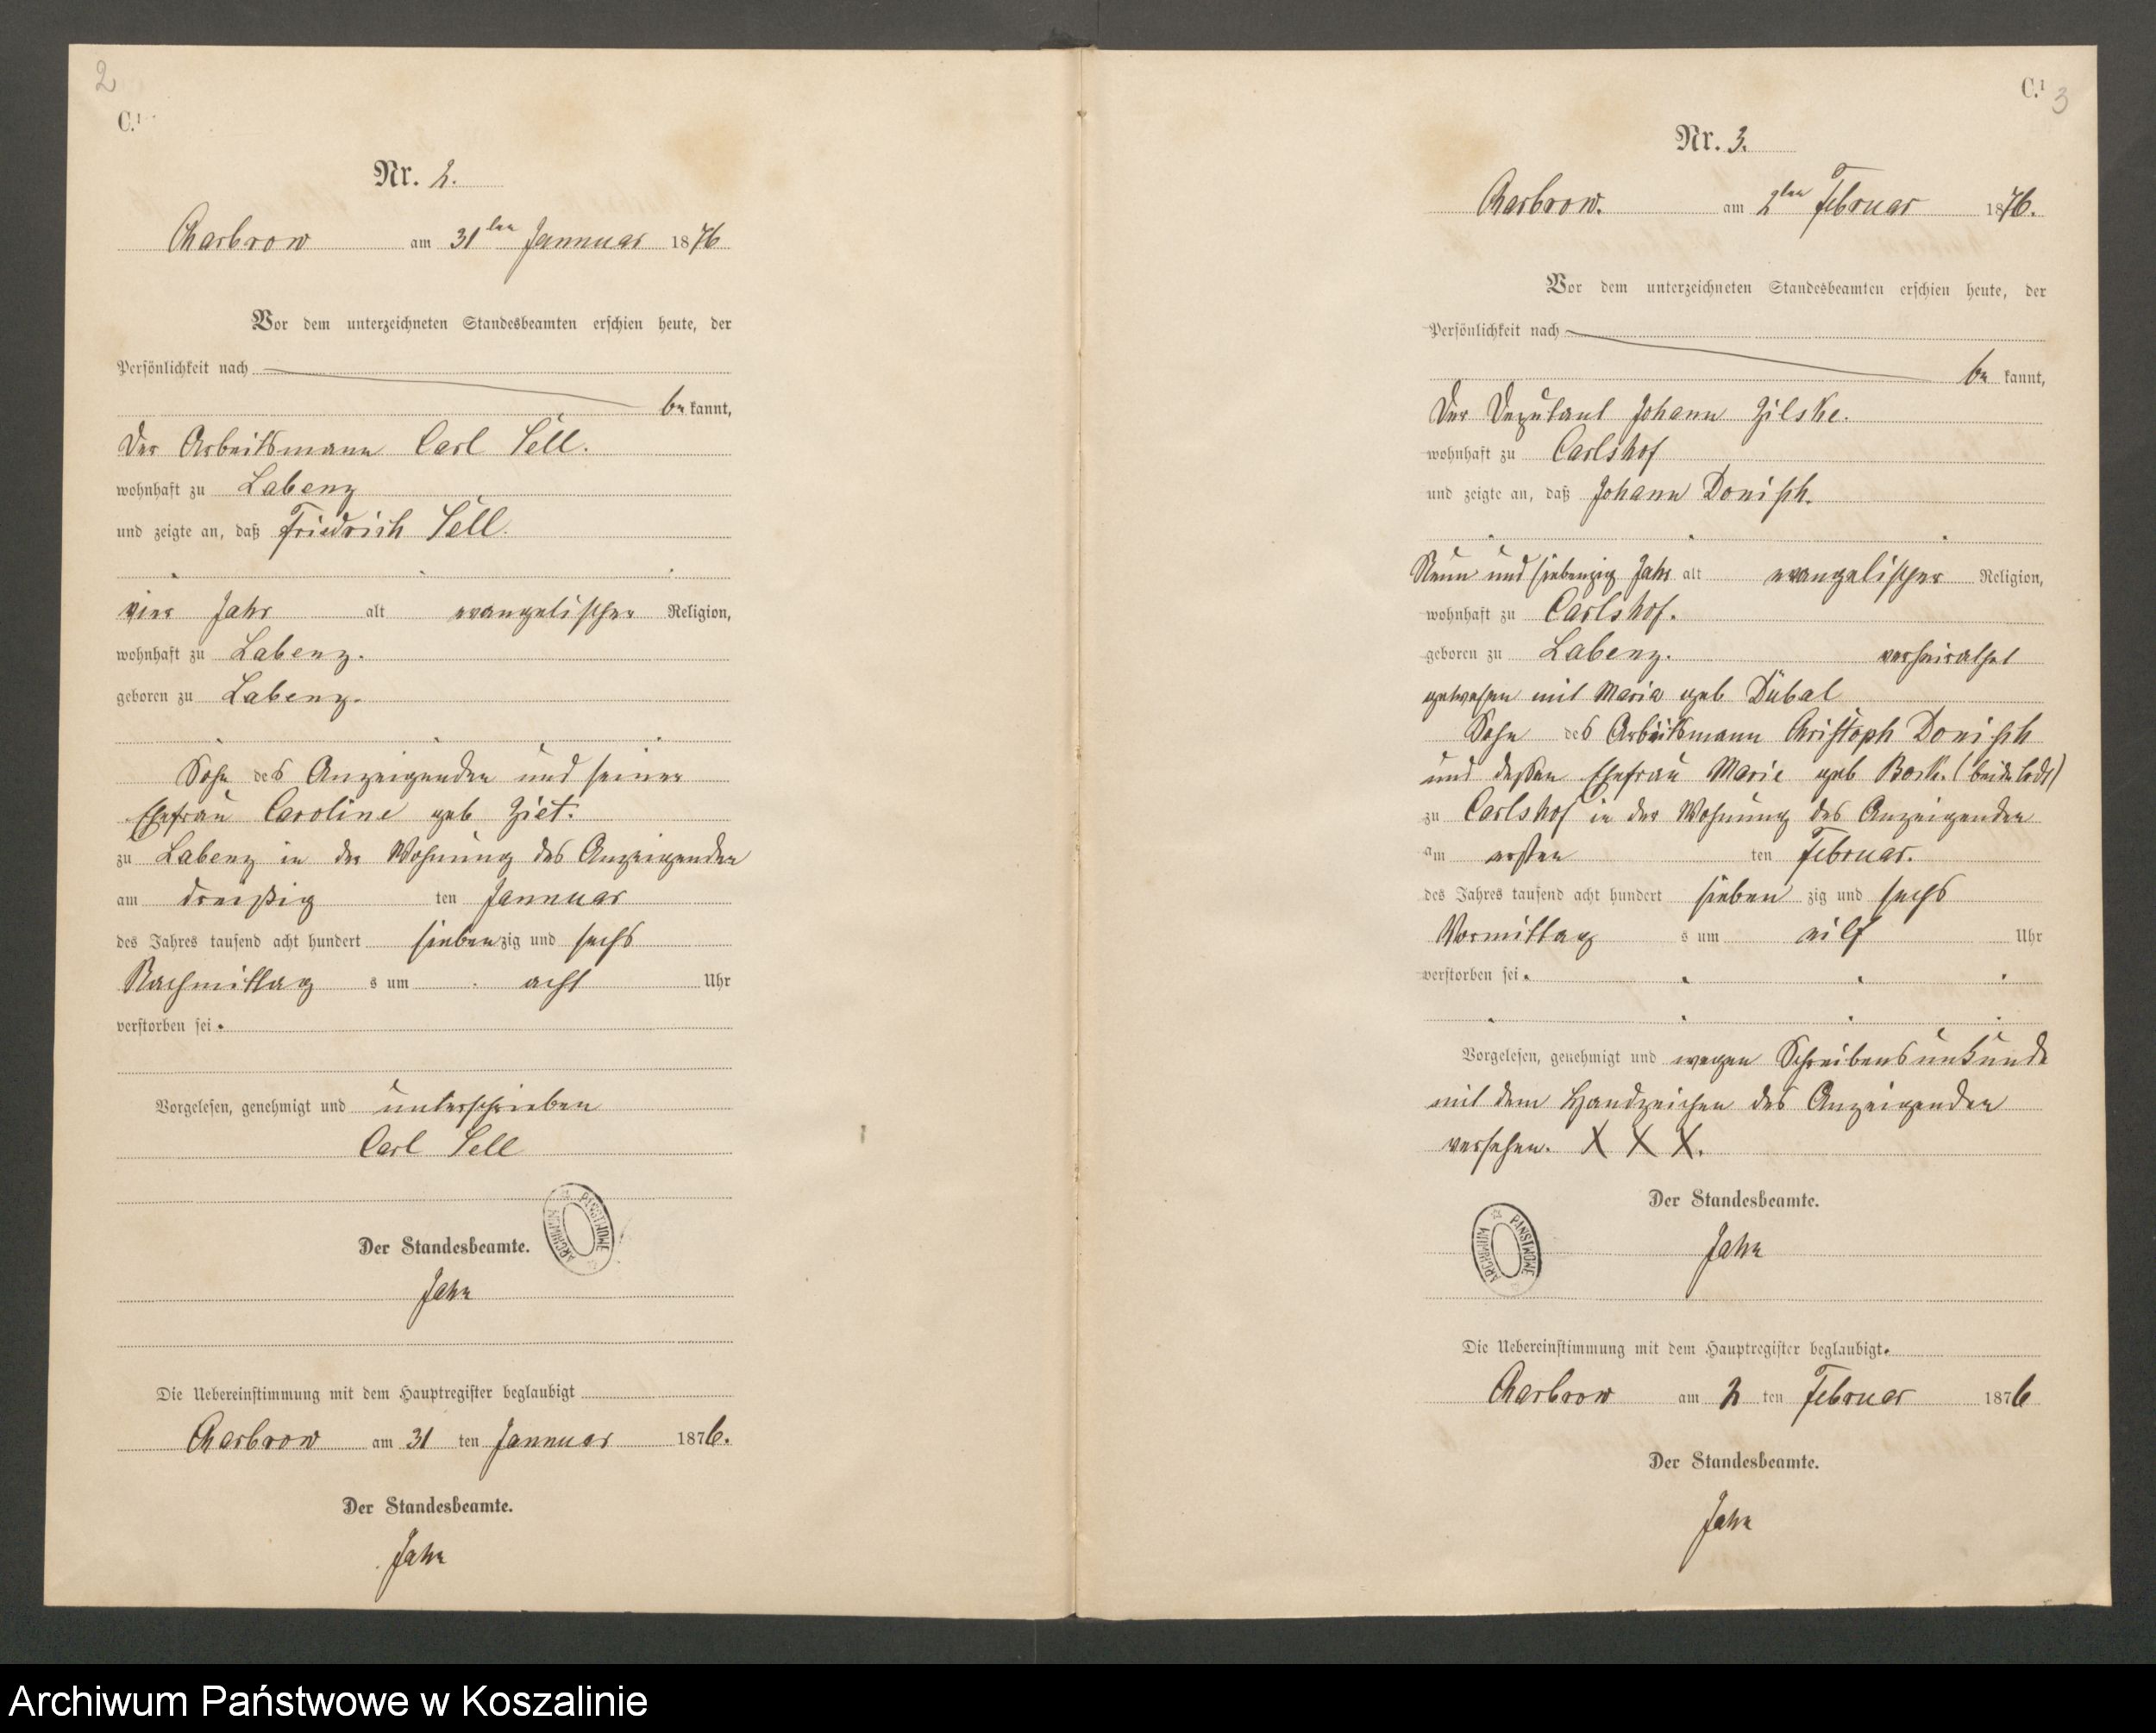 2
C.¹
Nr. 2.
Charbrow am 31ten Jannuar 1876
Vor dem unterzeichneten Standesbeamten erschien heute, der
Persönlichkeit nach
be kannt,
Der Arbeitsmann Carl Sell.
wohnhaft zu Labenz
und zeigte an, daß Friedrich Sell.
vier Jahr alt evangelischer Religion,
wohnhaft zu Labenz.
geboren zu Labenz.
Sohn des Anzeigenden und seiner
Ehefrau Caroline geb Ziet.
zu Labenz in der Wohnung des Anzeigenden
am dreißig ten Jannuar
des Jahres tausend acht hundert sieben zig und sechs
Nachmittag s um acht Uhr
verstorben sei.
Vorgelesen, genehmigt und unterschrieben
Carl Sell
ARCHIWUM PAŃSTWOWE
Der Standesbeamte.
Jahn
Die Uebereinstimmung mit dem Hauptregister beglaubigt
Charbrow am 31 ten Jannuar 1876.
Der Standesbeamte.
Jahn
C.¹ 3
Nr. 3.
Charbrow. am 2ten Februar 1876.
Vor dem unterzeichneten Standesbeamten erschien heute, der
Persönlichkeit nach
be kannt,
Der Deputant Johann Zilske.
wohnhaft zu Carlshof
und zeigte an, daß Johann Donisch.
Neun und siebenzig Jahr alt evangelischer Religion,
wohnhaft zu Carlshof.
geboren zu Labenz. verheirathet
gewesen mit Maria geb Dübal
Sohn des Arbeitsmann Christoph Donisch
und deßen Ehefrau Marie geb Bork. (beide todt)
zu Carlshof in der Wohnung des Anzeigenden
am ersten ten Februar.
des Jahres tausend acht hundert sieben zig und sechs
Vormittag s um eilf Uhr
verstorben sei.
Vorgelesen, genehmigt und wegen Schreibensunkunde
mit dem Handzeichen des Anzeigenden
versehen. X X X.
Der Standesbeamte.
ARCHIWUM PAŃSTWOWE
Jahn
Die Uebereinstimmung mit dem Hauptregister beglaubigt.
Charbrow am 2 ten Februar 1876
Der Standesbeamte.
Jahn
Archiwum Państwowe w Koszalinie